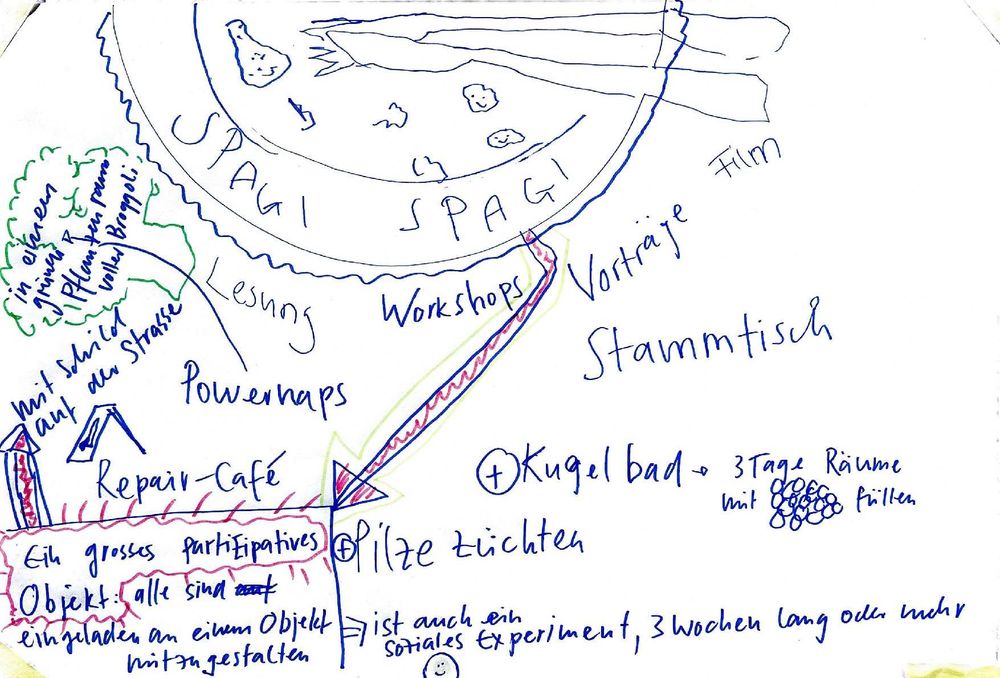 SPAGI
SPAGI
Film
in einem
grünen
Pflanzenraum
voller Broggoli
Lesung
Workshops
Vorträge
Stammtisch
mit Schild
auf der Strasse
Powernaps
Repair-Café
+ Kugelbad → 3 Tage Räume
mit füllen
Ein grosses partizipatives
Objekt: alle sind
eingeladen an einem Objekt
mitzugestalten
+ Pilze züchten
⇒ ist auch ein
soziales Experiment, 3 Wochen lang oder mehr